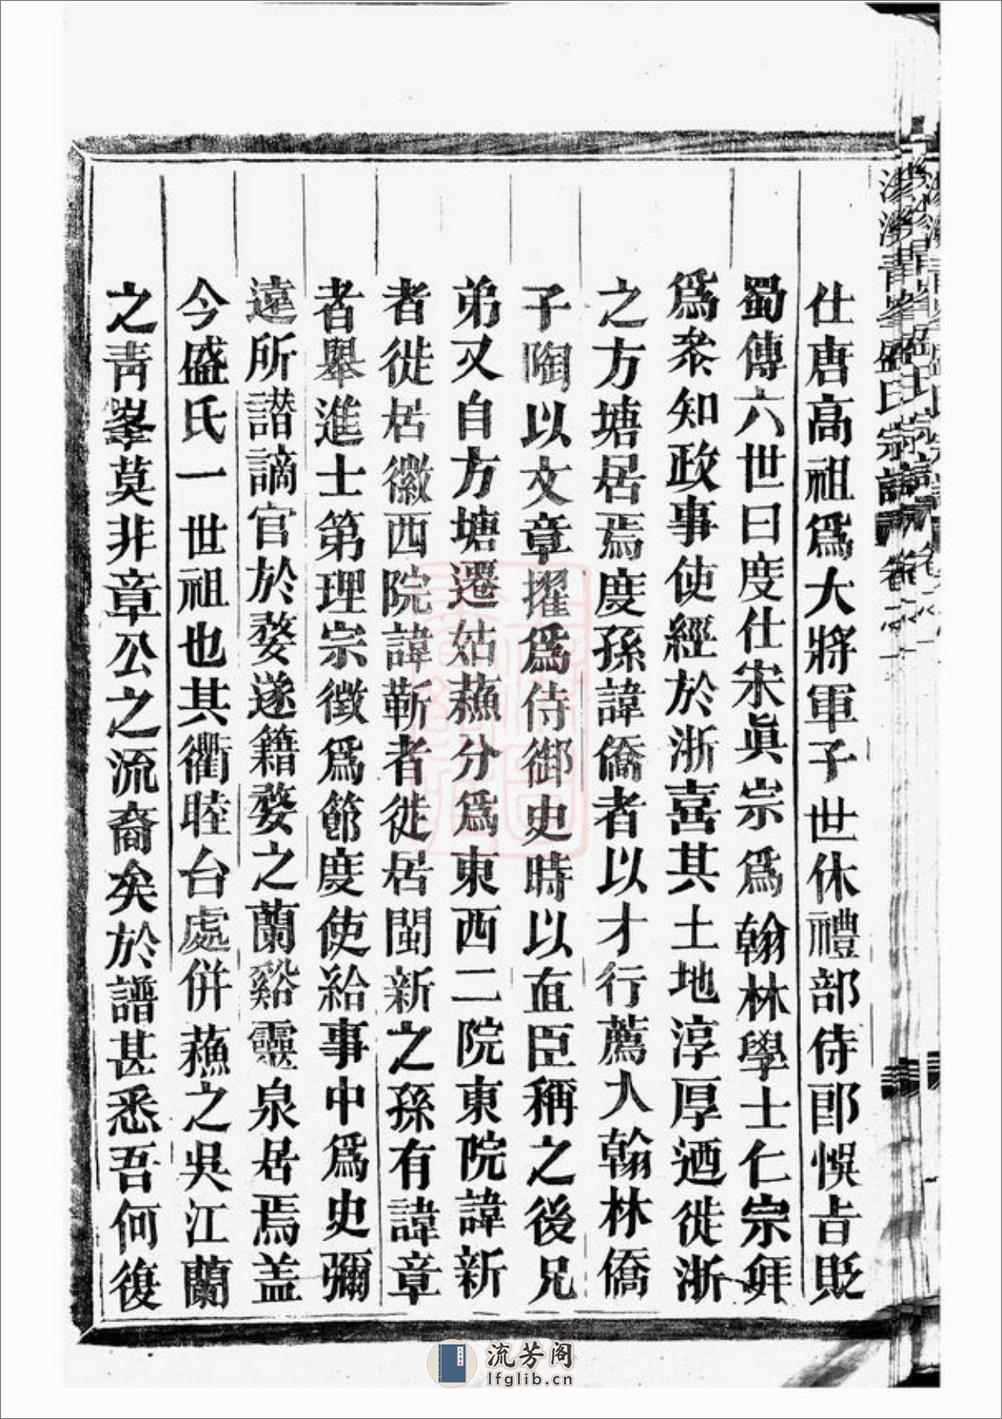 仕唐高祖爲大將軍子世休禮部侍郎悞旨貶
蜀傳六世曰度仕宋眞宗爲翰林學士仁宗拜
爲叅知政事使經於浙喜其土地淳厚迺徙浙
之方塘居焉度孫諱僑者以才行薦入翰林僑
子陶以文章擢爲侍御史時以直臣稱之後兄
弟又自方塘遷姑蘓分爲東西二院東院諱新
者徙居徽西院諱靳者徙居閩新之孫有諱章
者舉進士第理宗徵爲節度使給事中爲史彌
遠所譖謫官於婺遂籍婺之蘭谿靈泉居焉盖
今盛氏一世祖也其衢睦台處併蘓之吳江蘭
之靑峯莫非章公之流裔矣於譜甚悉吾何復
流芳阁
lfglib.cn